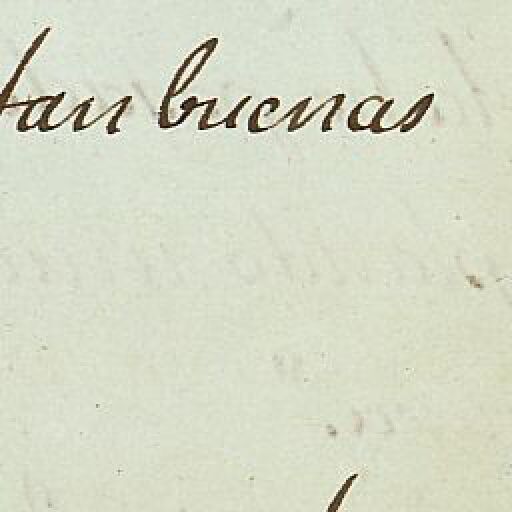 tan buenas